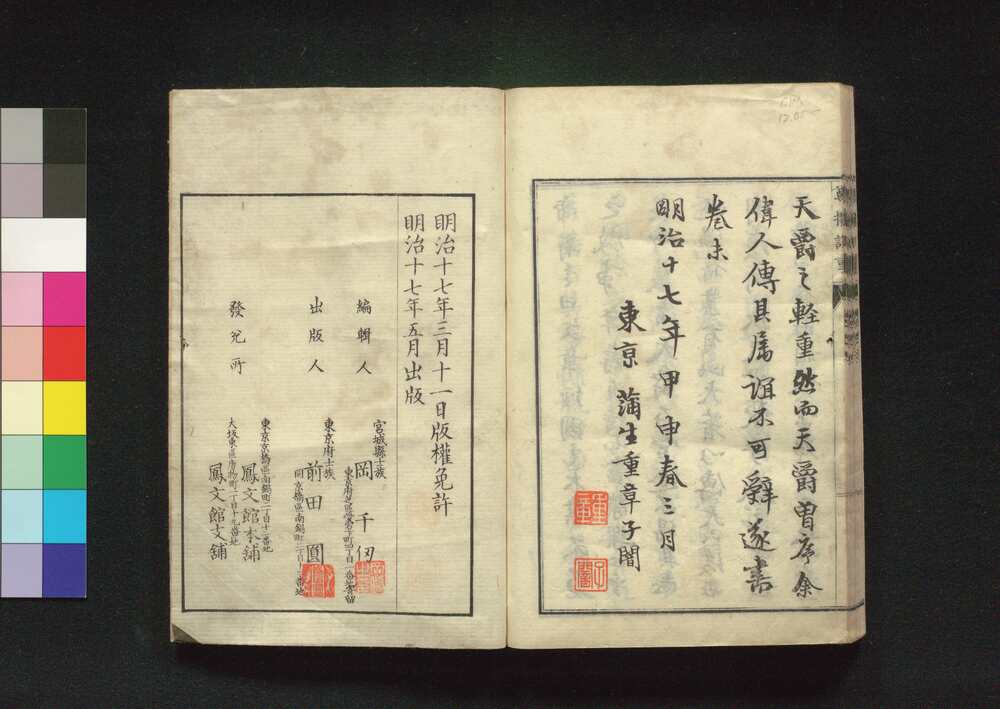 天爵之軽重然而天爵曽序余
偉人傳其属誼不可辭遂書
卷末
明治十七年甲申春三月
東京 蒲生重章子闇
重章
子闇
明治十七年三月十一日版權免許
明治十七年五月出版
編輯人
宮城縣士族
岡千仭
出版人
東京府士族
前田圓
發兌所
東京京橋區南鍋町二丁目十二番地
鳳文館本舗
大坂東區唐物町二丁目十九番地
鳳文館支舗